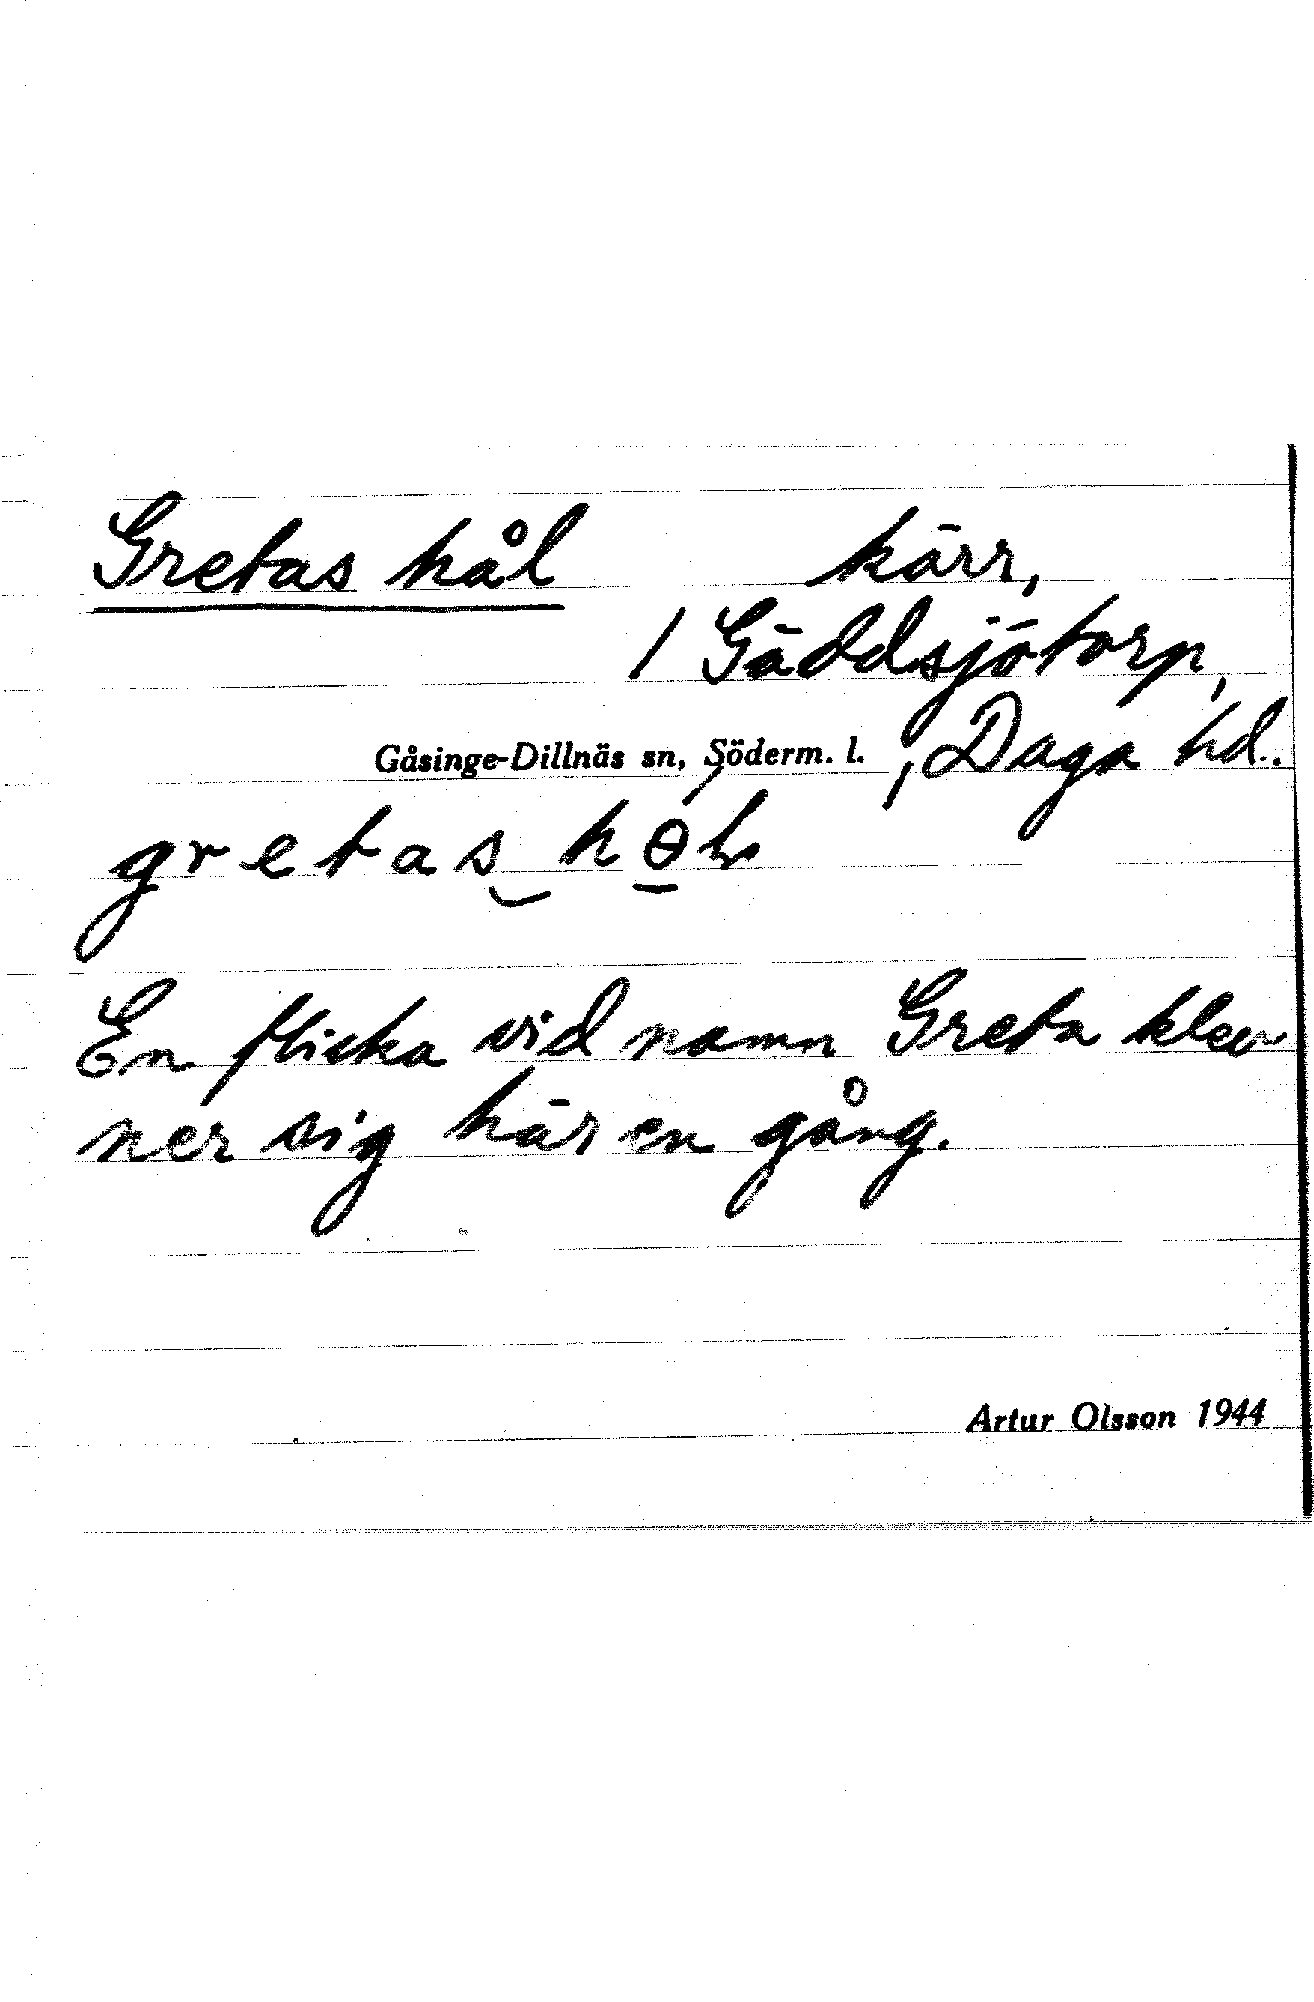 Gretas hål kärr,
/ Gäddsjötorp,
Gåsinge-Dillnäs sn, Söderm. l. , Daga hd.
En flicka vid namn Greta klev
ner sig här en gång.
Artur Olsson 1944